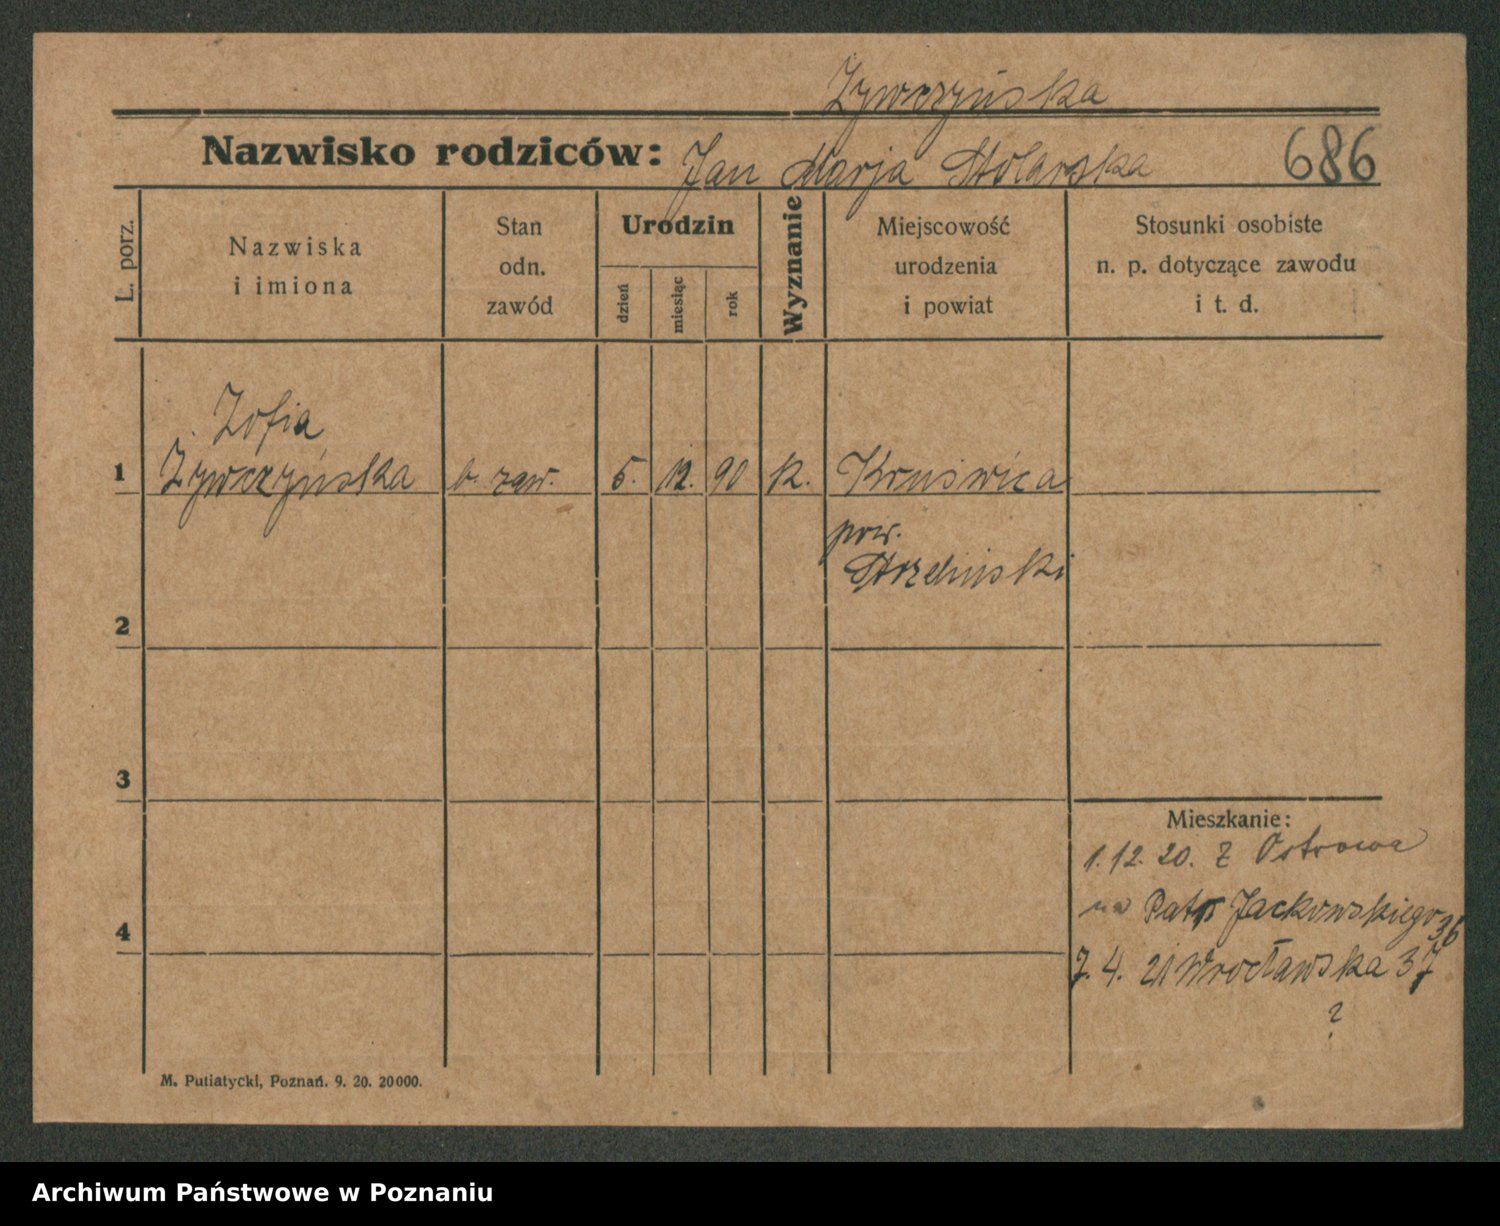 Żywczyńska
Nazwisko rodziców: Jan Marja Stolarska 686
L. porz.
Nazwiska
i imiona
Stan
odn.
zawód
Urodzin
dzień
miesiąc
rok
Wyznanie
Miejscowość
urodzenia
i powiat
Stosunki osobiste
n. p. dotyczące zawodu
i t. d.
Zofia
1 Żywczyńska b. zaw. 5. 12. 90 k. Kruświca
pow.
Strzeliński
2
3
Mieszkanie:
1.12.20. z Ostrowa
na Patr Jackowskiego 36
4
7. 4. 21 Wrocławska 37
?
M. Putiatycki, Poznań. 9. 20. 20000.
Archiwum Państwowe w Poznaniu